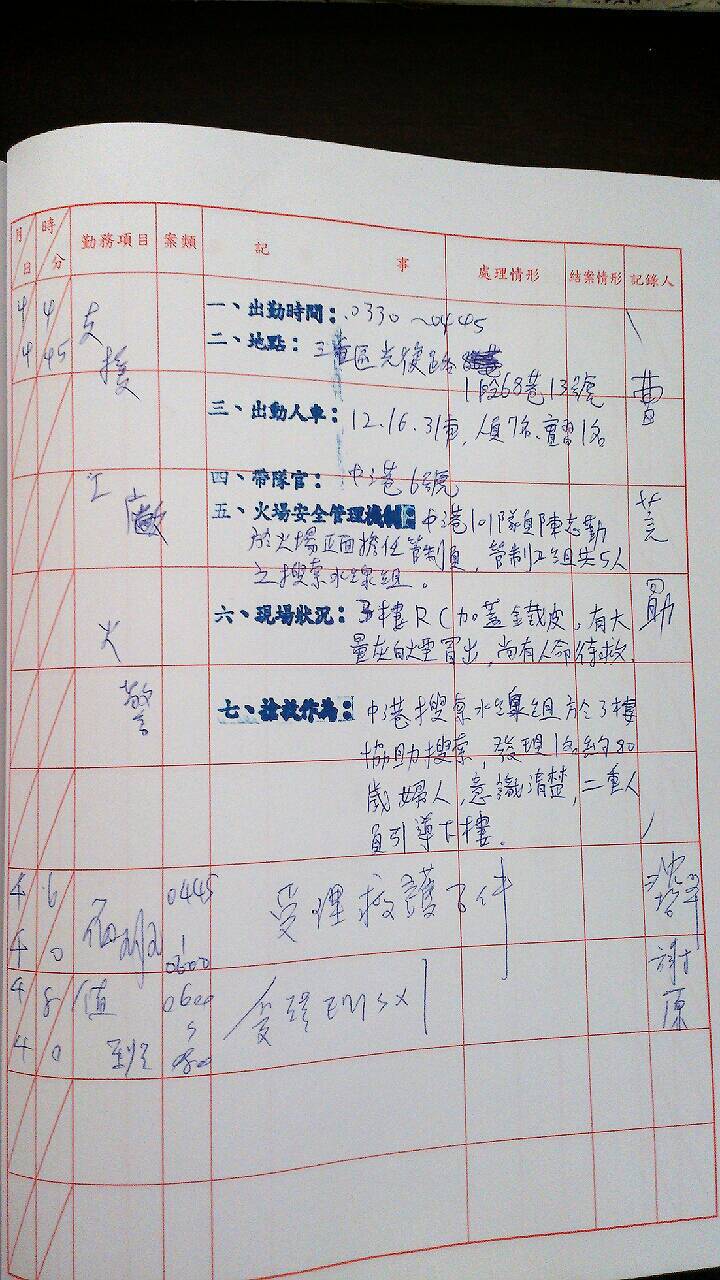 月 日 時 分 勤務項目 案類 記 事 處理情形 結案情形 記錄人
4 4 4 45
支援
工廠
火警
一、出勤時間：0330～0445
二、地點：三重區光復路
1段68巷13號
三、出動人車：12.16.31車，人員7名、實習1名
四、帶隊官：中港6號
五、火場安全管理機制：中港101隊員陳志勤
於火場正面擔任管制員，管制2組共5人
之搜索水線組。
六、現場狀況：3樓RC加蓋鐵皮，有大
量灰白煙冒出，尚有人命待救。
七、搶救作為：中港搜索水線組於3樓
協助搜索，發現1名約80
歲婦人，意識清楚，二重人
員引導下樓。
曹
勛
4 4 6 0
0445
0600
受理救護
件
4 4 8 0
值
0600
受理EMSx1
謝
原